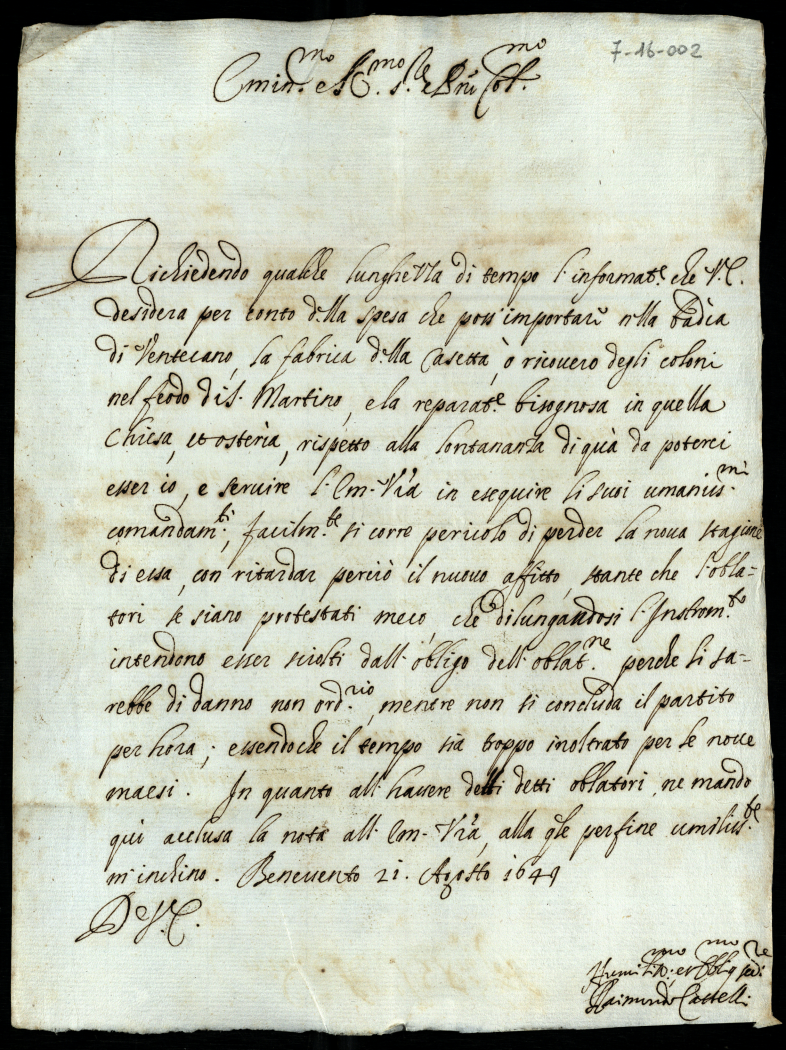 7-16-002
Emin.mo e R.mo S.re e Pnē Col.mo
Richiedendo qualche lunghezza di tempo l'informat.e che V.E.
desidera per conto d.lla spesa che poss'importare n'lla Badia
di Ventecano, la fabrica d.lla Casetta, ò ricouero degli coloni
nel feodo di S. Martino, e la reparat.e bisognosa in quella
Chiesa, et osteria, rispetto alla lontananza di quà da poterci
esser io, e seruire l'Em. V'rā in esequire li suoi umaniss.mi
comandam.ti, facilm.te si corre pericolo di perder la noua stagione
di essa, con ritardar perciò il nuouo affitto, stante che l'obla-
tori se siano protestati meco, che dilungandosi l'Instrom.to
intendono esser sciolti dall'obligo dell'oblat.ne perche li sa-
rebbe di danno non ord.rio, mentre non si concluda il partito
per hora; essendoche il tempo sia troppo inoltrato per le noue
maesi. In quanto all'hauere delli detti oblatori, ne mando
quì acclusa la nota all'Em. V'rā, alla q'le per fine umiliss.te
m'inchino. Beneuento 21. Agosto 1649
D. V. E.
Humiliss.mo et Obblig.mo ser.re
Raimondo Castelli